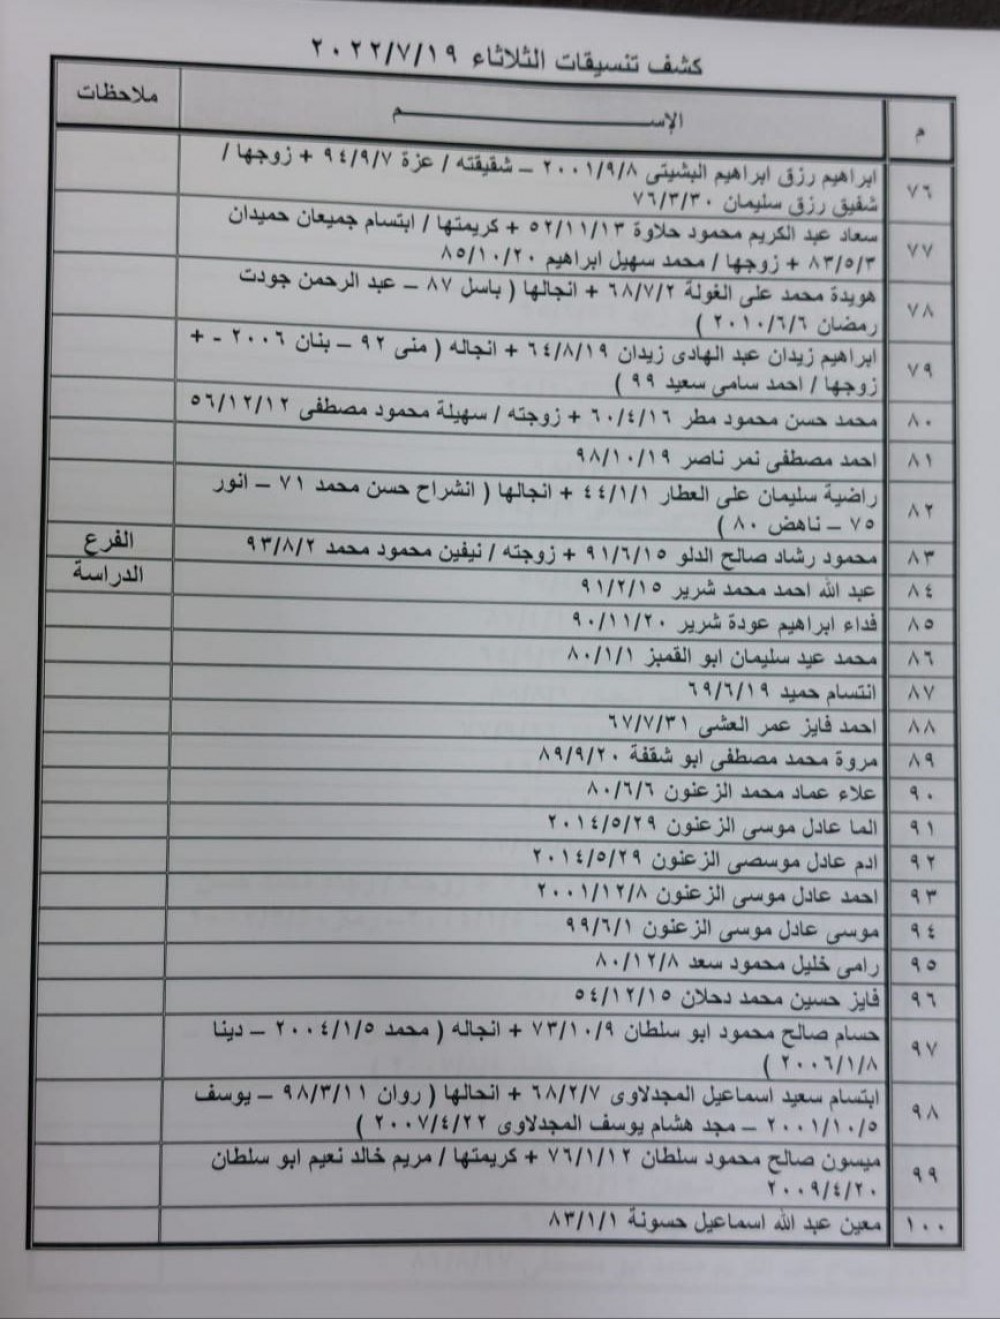 كشف تنسيقات الثلاثاء ٢٠٢٢/٧/١٩
م الإســــــــم ملاحظات
٧٦ ابراهيم رزق ابراهيم البشيتى ٢٠٠١/٩/٨ – شقيقته / عزة ٩٤/٩/٧ + زوجها /
شفيق رزق سليمان ٧٦/٣/٣٠
٧٧ سعاد عبد الكريم محمود حلاوة ٥٢/١١/١٣ + كريمتها / ابتسام جميعان حميدان
٨٣/٥/٣ + زوجها / محمد سهيل ابراهيم ٨٥/١٠/٢٠
٧٨ هويدة محمد على الغولة ٦٨/٧/٢ + انجالها ( باسل ٨٧ – عبد الرحمن جودت
رمضان ٢٠١٠/٦/٦ )
٧٩ ابراهيم زيدان عبد الهادى زيدان ٦٤/٨/١٩ + انجاله ( منى ٩٢ – بنان ٢٠٠٦ - +
زوجها / احمد سامى سعيد ٩٩ )
٨٠ محمد حسن محمود مطر ٦٠/٤/١٦ + زوجته / سهيلة محمود مصطفى ٥٦/١٢/١٢
٨١ احمد مصطفى نمر ناصر ٩٨/١٠/١٩
٨٢ راضية سليمان على العطار ٤٤/١/١ + انجالها ( انشراح حسن محمد ٧١ – انور
٧٥ – ناهض ٨٠ )
٨٣ محمود رشاد صالح الدلو ٩١/٦/١٥ + زوجته / نيفين محمود محمد ٩٣/٨/٢ الفرع
٨٤ عبد الله احمد محمد شرير ٩١/٢/١٥ الدراسة
٨٥ فداء ابراهيم عودة شرير ٩٠/١١/٢٠
٨٦ محمد عيد سليمان ابو القمبز ٨٠/١/١
٨٧ انتسام حميد ٦٩/٦/١٩
٨٨ احمد فايز عمر العشى ٦٧/٧/٣١
٨٩ مروة محمد مصطفى ابو شقفة ٨٩/٩/٢٠
٩٠ علاء عماد محمد الزعنون ٨٠/٦/٦
٩١ الما عادل موسى الزعنون ٢٠١٤/٥/٢٩
٩٢ ادم عادل موسصى الزعنون ٢٠١٤/٥/٢٩
٩٣ احمد عادل موسى الزعنون ٢٠٠١/١٢/٨
٩٤ موسى عادل موسى الزعنون ٩٩/٦/١
٩٥ رامى خليل محمود سعد ٨٠/١٢/٨
٩٦ فايز حسين محمد دحلان ٥٤/١٢/١٥
٩٧ حسام صالح محمود ابو سلطان ٧٣/١٠/٩ + انجاله ( محمد ٢٠٠٤/١/٥ – دينا
٢٠٠٦/١/٨ )
٩٨ ابتسام سعيد اسماعيل المجدلاوى ٦٨/٢/٧ + انحالها ( روان ٩٨/٣/١١ – يوسف
٢٠٠١/١٠/٥ – مجد هشام يوسف المجدلاوى ٢٠٠٧/٤/٢٢ )
٩٩ ميسون صالح محمود سلطان ٧٦/١/١٢ + كريمتها / مريم خالد نعيم ابو سلطان
٢٠٠٩/٤/٢٠
١٠٠ معين عبد الله اسماعيل حسونة ٨٣/١/١